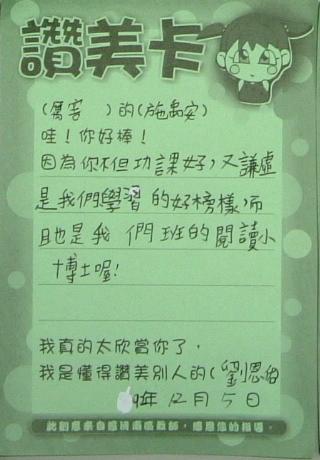 讚美卡
(厲害　)的(施禹安)
哇！你好棒！
因為你不但功課好，又謙虛
是我們學習的好榜樣，而
且也是我們班的閱讀小
博士喔！
我真的太欣賞你了。
我是懂得讚美別人的(劉恩佑
年12月5日